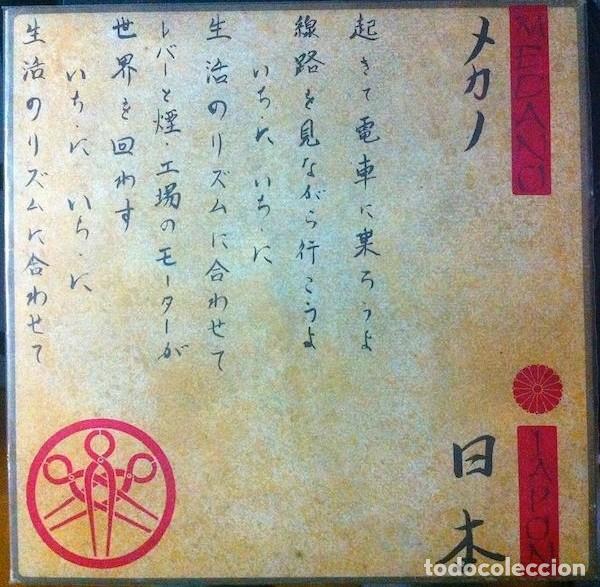 MECANO
メカノ
JAPON
日本
起きて電車に乗ろうよ
線路を見ながら行こうよ
いち・に いち・に
生活のリズムに合わせて
レバーと煙・工場のモーターが
世界を回わす
いち・に いち・に
生活のリズムに合わせて
todocoleccion